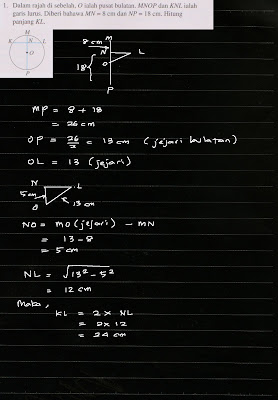 1. Dalam rajah di sebelah, O ialah pusat bulatan. MNOP dan KNL ialah
garis lurus. Diberi bahawa MN = 8 cm dan NP = 18 cm. Hitung
panjang KL.
M
K N L
O
P
8 cm M
N L
O
18
P
MP = 8 + 18
= 26 cm
OP = 26/2 = 13 cm (jejari bulatan)
OL = 13 (jejari)
N L
5 cm
O 13 cm
NO = MO (jejari) - MN
= 13 - 8
= 5 cm
NL = √13² - 5²
= 12 cm
Maka,
KL = 2 x NL
= 2 x 12
= 24 cm